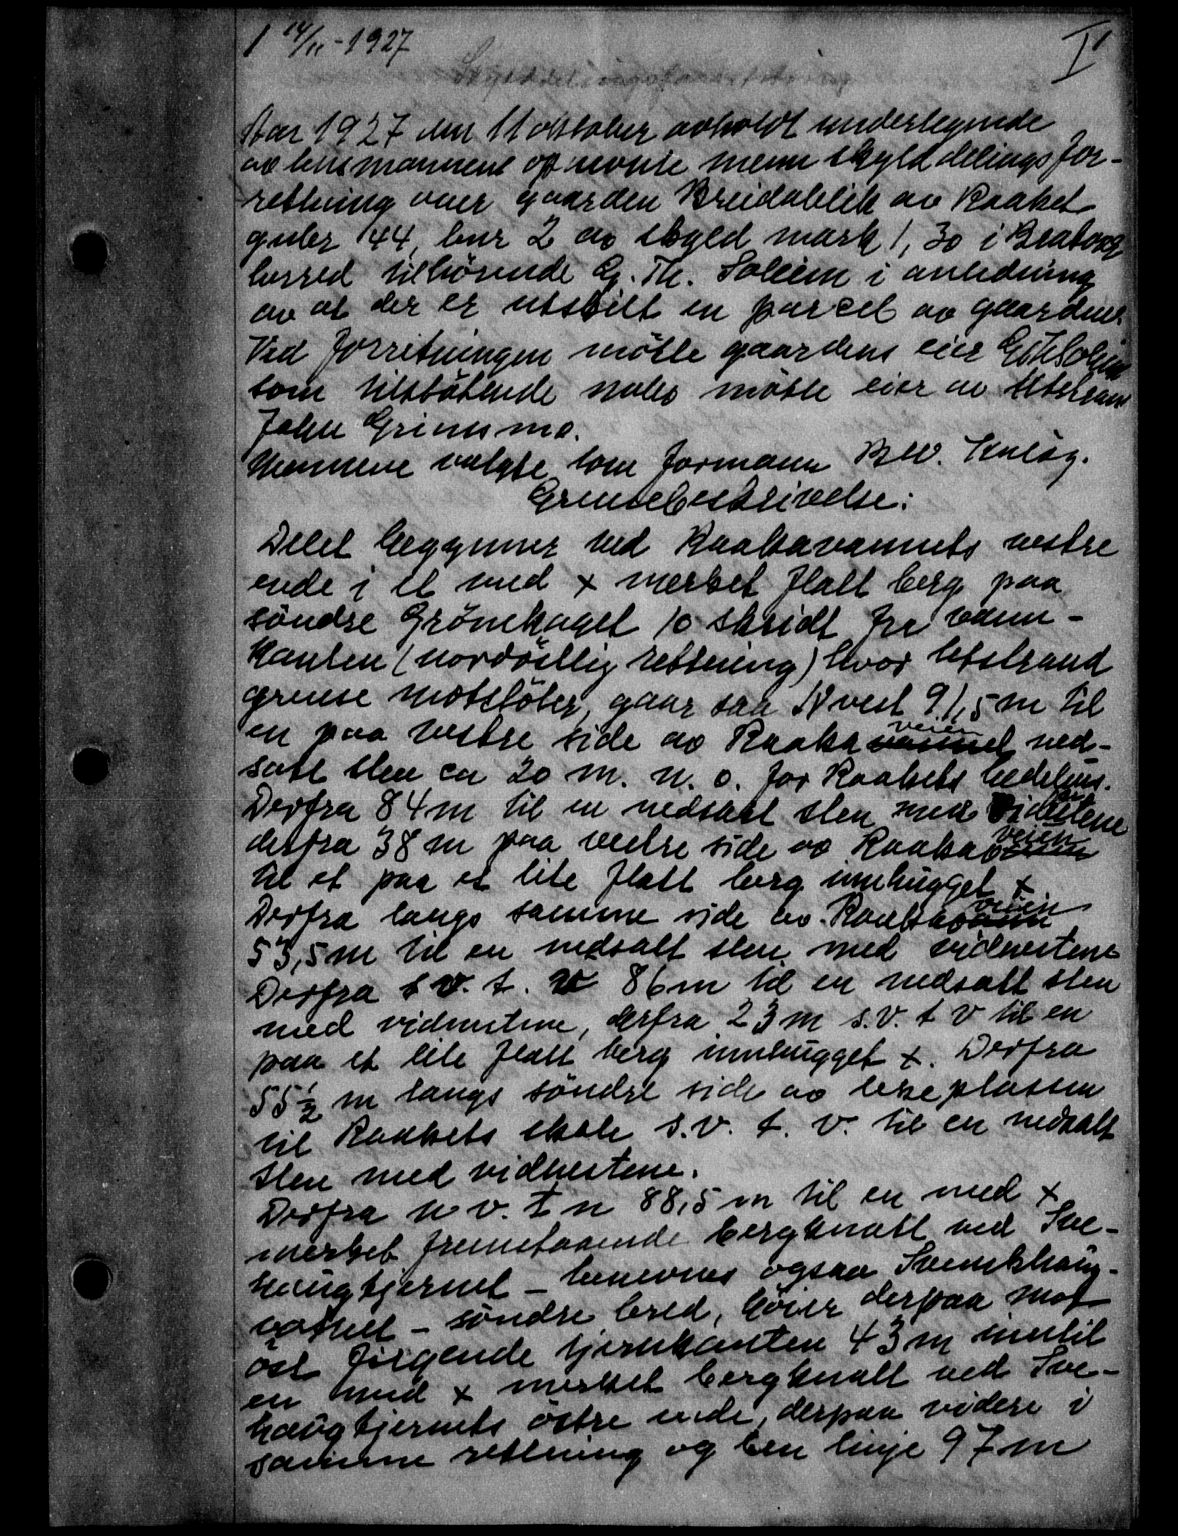 1 14/11-1927 I
Skylddelingsforretning
Aar 1927 den 11 oktober avholdt undertegnede
av lensmannen opnevnte menn skylddelingsfor-
retning over gaarden Breidablik av Raaket
gnler 144, bnr 2 av skyld mark 1,30 i
herred tilhørende G. Th. Soleim i anledning
av at der er utskilt en parcel av gaarden.
Ved forretningen møtte gaardens eier G Th Soleim
som tilstøtende nabo møtte eier av Utstrand
John Grimsmo.
Mennene valgte som formann
Grensebeskrivelse:
Delet begynner ved Raaksavannets vestre
ende i et med x merket flatt berg paa
søndre Grønehaget 10 skridt fra vann-
kanten (nordøstlig rettning) hvor Utstrand
grense motstøter, gaar saa N vest 91,5 m til
en paa vestre side av Raaksa vannet veien ned-
satt sten ca 20 m. n. o. for Raakets
Derfra 84 m til en nedsatt sten med vidnestene
derfra 38 m paa vestre side av Raaksa veien
til et paa et lite flatt berg innhugget x.
Derfra langs samme side av Raaksa veien
53,5 m til en nedsatt sten med vidnestene
Derfra s v. t. v 86 m til en nedsatt sten
med vidnestene, derfra 23 m s.v. t v til en
paa et lite flatt berg innhugget x. Derfra
55 1/2 m langs søndre side av lekeplassen
til Raakets skole s.v. t. v. til en nedsatt
sten med vidnestene.
Derfra n v. t n 88,5 m til en med x
merket fremstaaende bergknatt ved Sve-
haugtjernet - benevnes ogsaa
- søndre bred, bøier derpaa mot
øst følgende tjernkanten 43 m inntil
en med x merket bergknatt ved Sve-
haugtjernets østre ende, derpaa videre i
samme rettning og ben linje 97 m